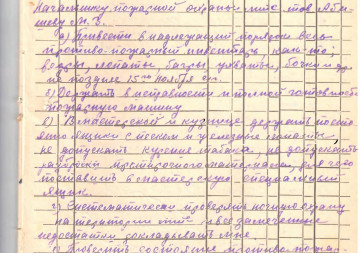 Начальнику пожарной охраны мтс тов
шеву И.В.
а) Привести в надлежащий порядок весь
противо-пожарный инвентарь как-то;
ведра, лопаты, багры, ухваты, бочки и др
не позднее 15го Ноября с.г.
б) Держать в исправности и полной готовности
пожарную машину
в) В мастерской и кузнице держать посто
янно ящики с песком и железные лопаты,
не допускать курение табака, не допускать
разброски обтирочного материала, для чего
поставить в мастерскую специальный
ящик.
г) Систематически проверять ночную охрану
на территории мтс и все замеченные
недостатки докладывать мне.
Проверить состояние противо-пожар-